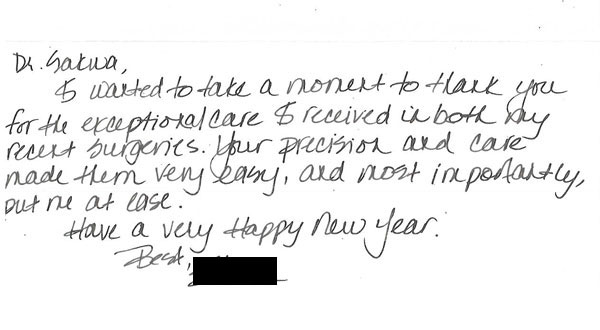 Dr. Sakwa,
I wanted to take a moment to thank you
for the exceptional care I received in both my
recent surgeries. Your precision and care
made them very easy, and most importantly,
put me at ease.
Have a very Happy New Year.
Best,